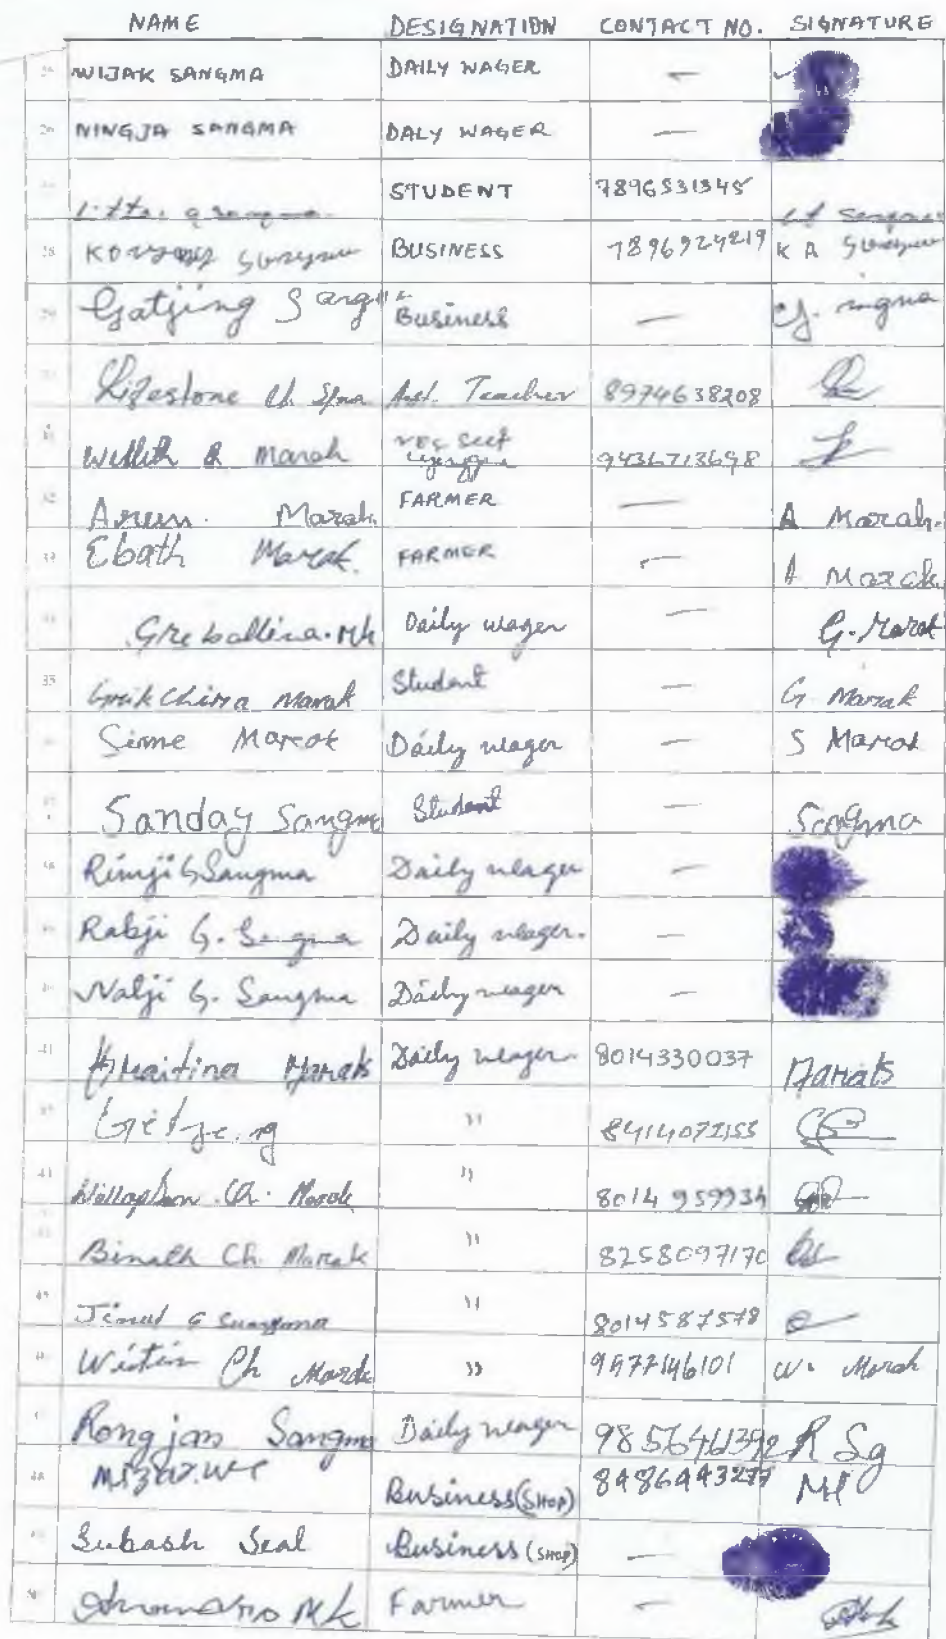 NAME DESIGNATION CONTACT NO. SIGNATURE
WIJAK SANGMA DAILY WAGER —
26 NINGJA SANGMA DALY WAGER —
STUDENT 7896531345
28 BUSINESS 7896924219 K A
29 Gatjing Business —
Lifestone Ch. Sma Asst. Teacher 8974638208
31 Marak 9436713698
32 Marak. FARMER — A Marak.
33 Ebath Marak. FARMER — A Marak
Greballina. Mk Daily wager — G. Marak
35 Grikchira Marak Student — G Marak
Sime Marak Daily wager — S Marak
37 Sanday Sangma Student — Sangma
38 Rimji G Sangma Daily wager —
Rabji G. Sangma Daily wager. —
Nalji G. Sangma Daily wager —
41 Marak Daily wager. 8014330037 Marak
" 8414072153
43 Ch. Marak " 8014959934
Binath Ch. Marak " 8258097170
45 G Sangma " 8014587578
Witin Ch Marak " 9577146101 W. Marak
Rongjan Sangma Daily wager 9856461392 R Sg
48 Business (SHOP) 8486443277
Subash Seal Business (SHOP) —
50 Mk Farmer —